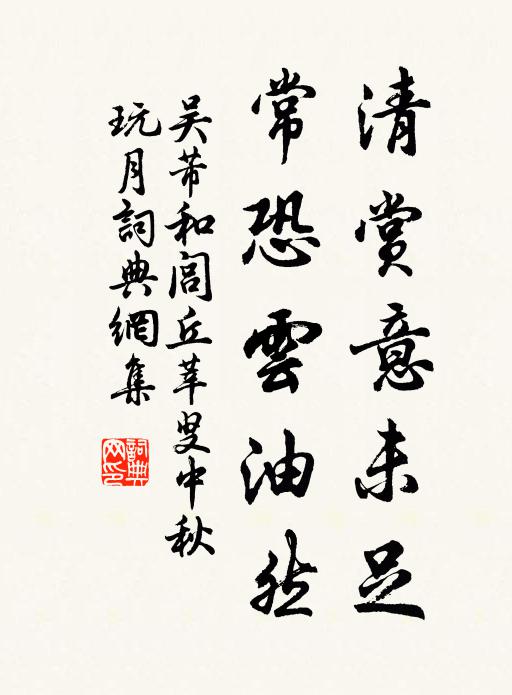 清賞意未足
常恐雲油然
吴芾和閭丘莘叟中秋
玩月詞典網集
詞典
网印